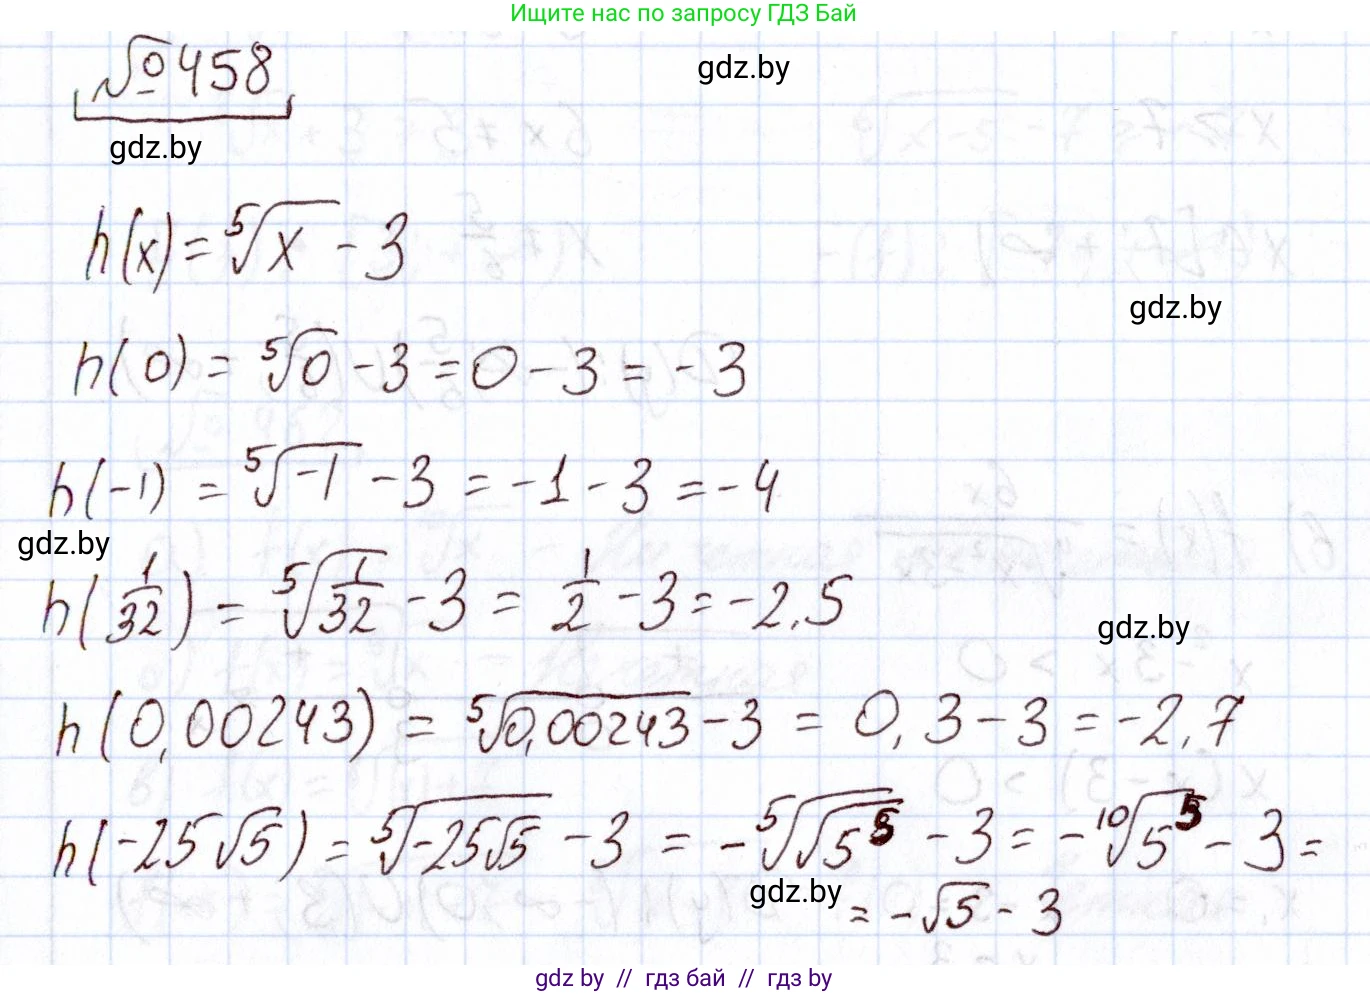 Ищите нас по запросу ГДЗ Бай
№458
gdz.by
gdz.by
h(x) = ⁵√x - 3
gdz.by
h(0) = ⁵√0 - 3 = 0 - 3 = -3
h(-1) = ⁵√-1 - 3 = -1 - 3 = -4
gdz.by
h(1/32) = ⁵√(1/32) - 3 = 1/2 - 3 = -2,5
gdz.by
h(0,00243) = ⁵√0,00243 - 3 = 0,3 - 3 = -2,7
h(-25√5) = ⁵√(-25√5) - 3 = -⁵√(√5⁵) - 3 = -¹⁰√5⁵ - 3 =
gdz.by
= -√5 - 3
gdz by // гдз бай // гдз by